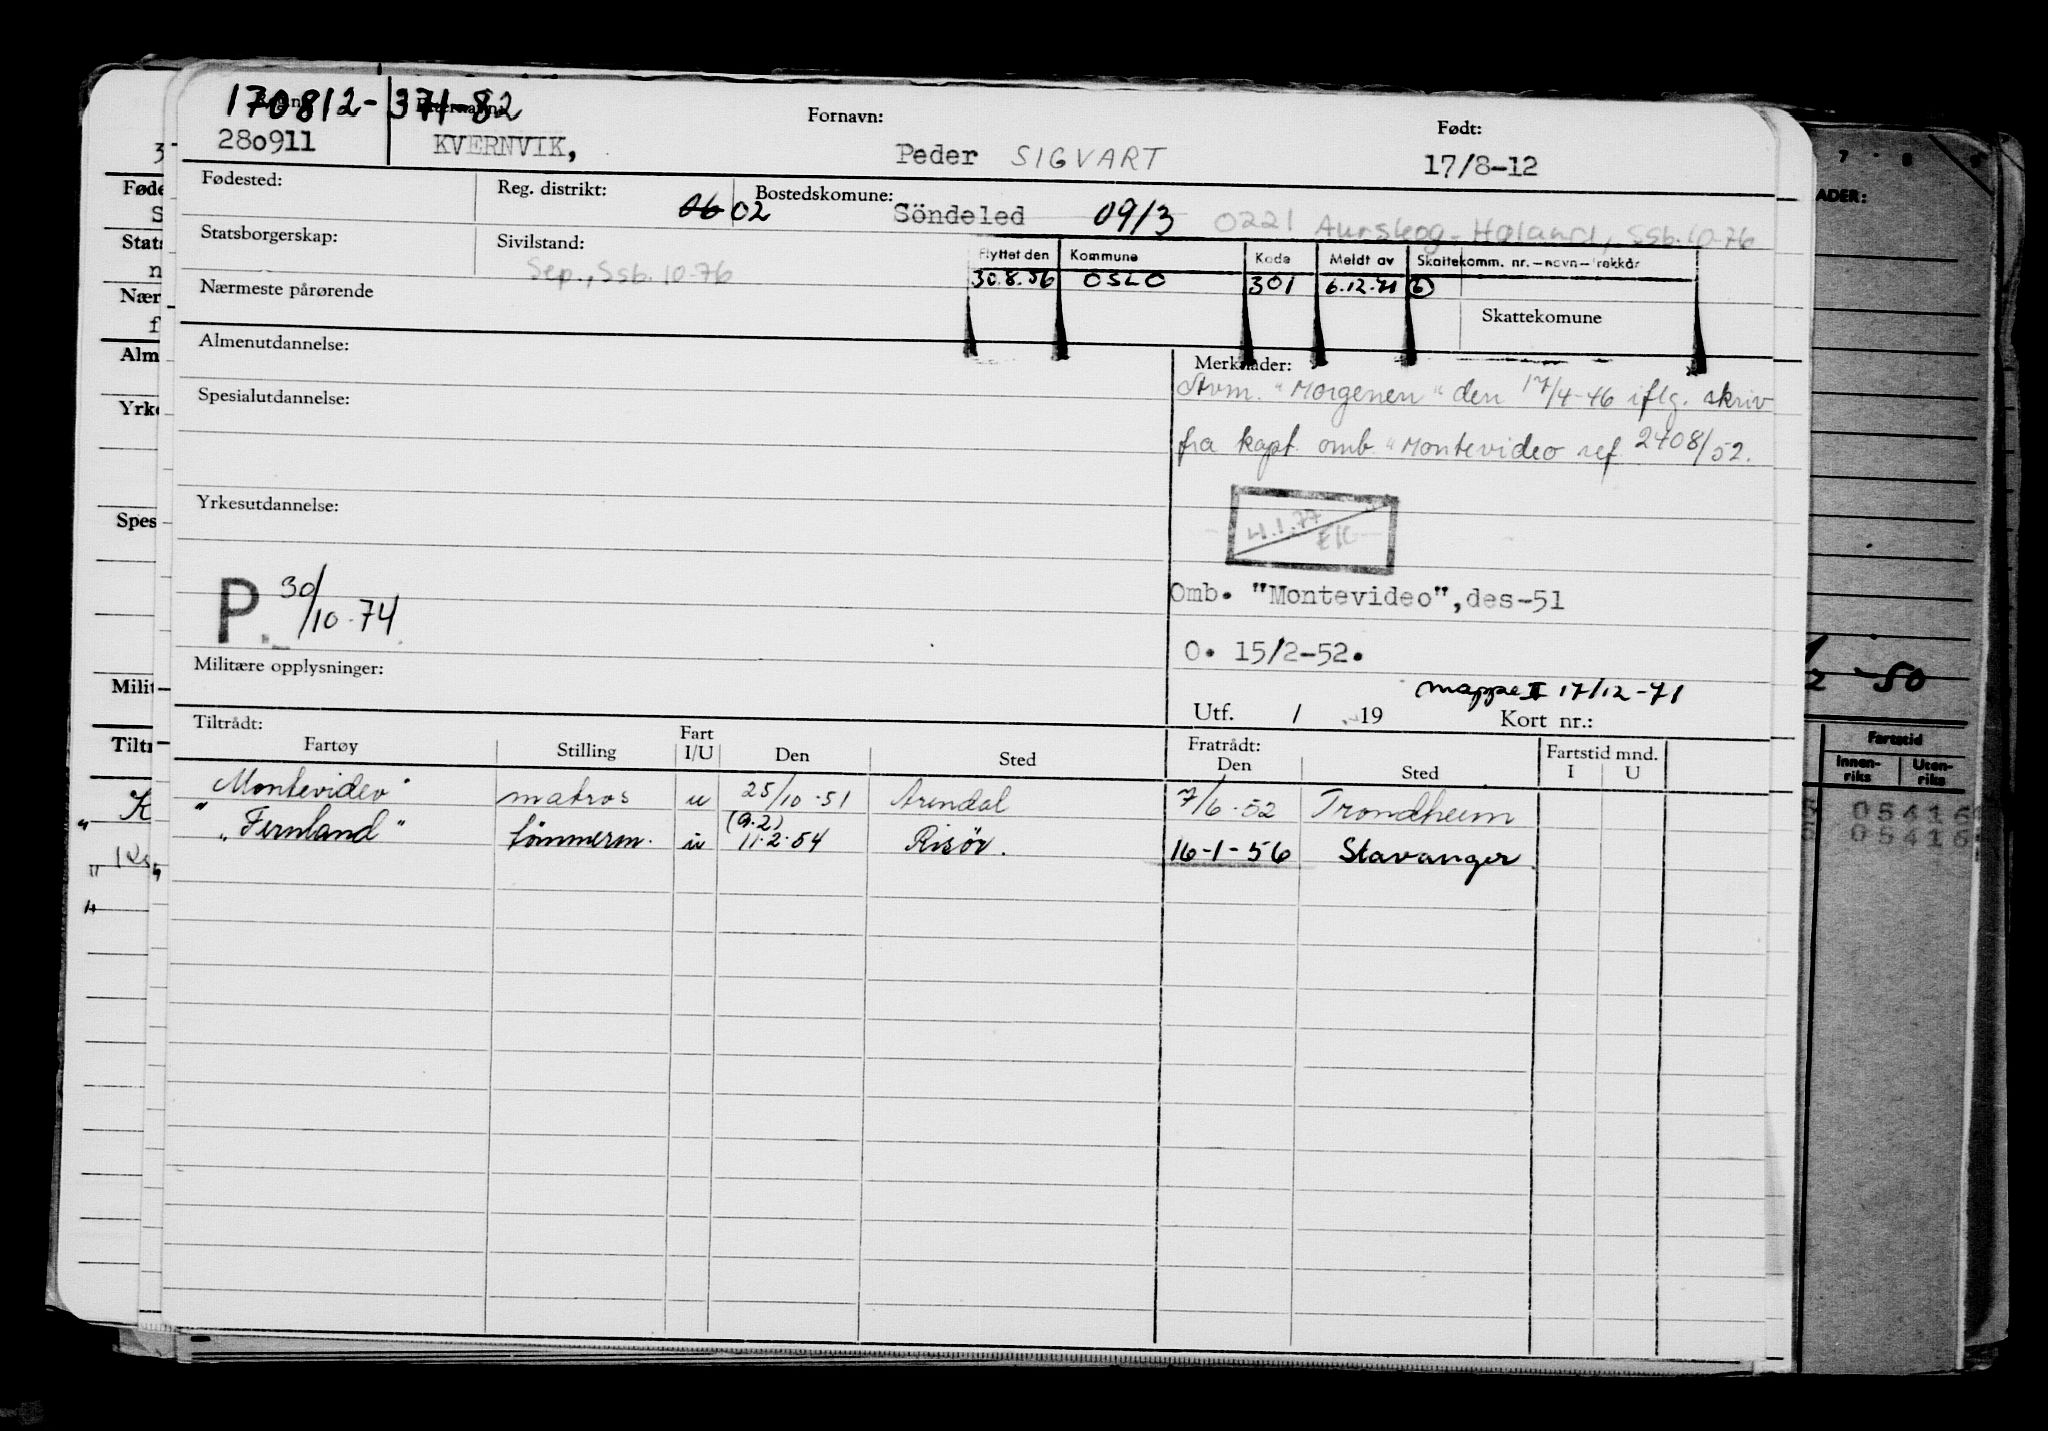 170812-37182
Fornavn:
Født:
280911
KVERNVIK,
Peder SIGVART
17/8-12
Fødested:
Reg. distrikt:
06 02
Bostedskomune:
Söndeled 0913 0221 Aurskog-Høland, Ssb. 10-76
Statsborgerskap:
Sivilstand:
Sep., Ssb. 10-76
Flyttet den Kommune Kode Meldt av Skattekomm. nr.-navn-trekkår
30.8.56 OSLO 301 6.12.71 6
Nærmeste pårørende
Skattekomune
Almenutdannelse:
Merknader:
Stvm. "Morgenen" den 17/4-46 iflg. skriv
Spesialutdannelse:
fra kapt. omb. "Montevideo ref 2408/52.
Yrkesutdannelse:
4.1.77
EK
P. 30/10-74
Omb. "Montevideo",des-51
O. 15/2-52.
Militære opplysninger:
mappe II 17/12-71
Utf. / 19 Kort nr.:
Tiltrådt:
Fratrådt:
Fartstid mnd.
Fartøy Stilling Fart I/U Den Sted Den Sted I U
Montevideo" matros u 25/10-51 Arendal 7/6-52 Trondheim
(9.2)
"Fernland" tømmerm. u 11.2.54 Risør. 16-1-56 Stavanger
Føde
S
Stats
n
Nær
f
Alm
Yrke
Spes
Milit
Tiltr
K
7 8
ADER:
2 -50
Fartstid
Innen-riks Uten-riks
05416
05416